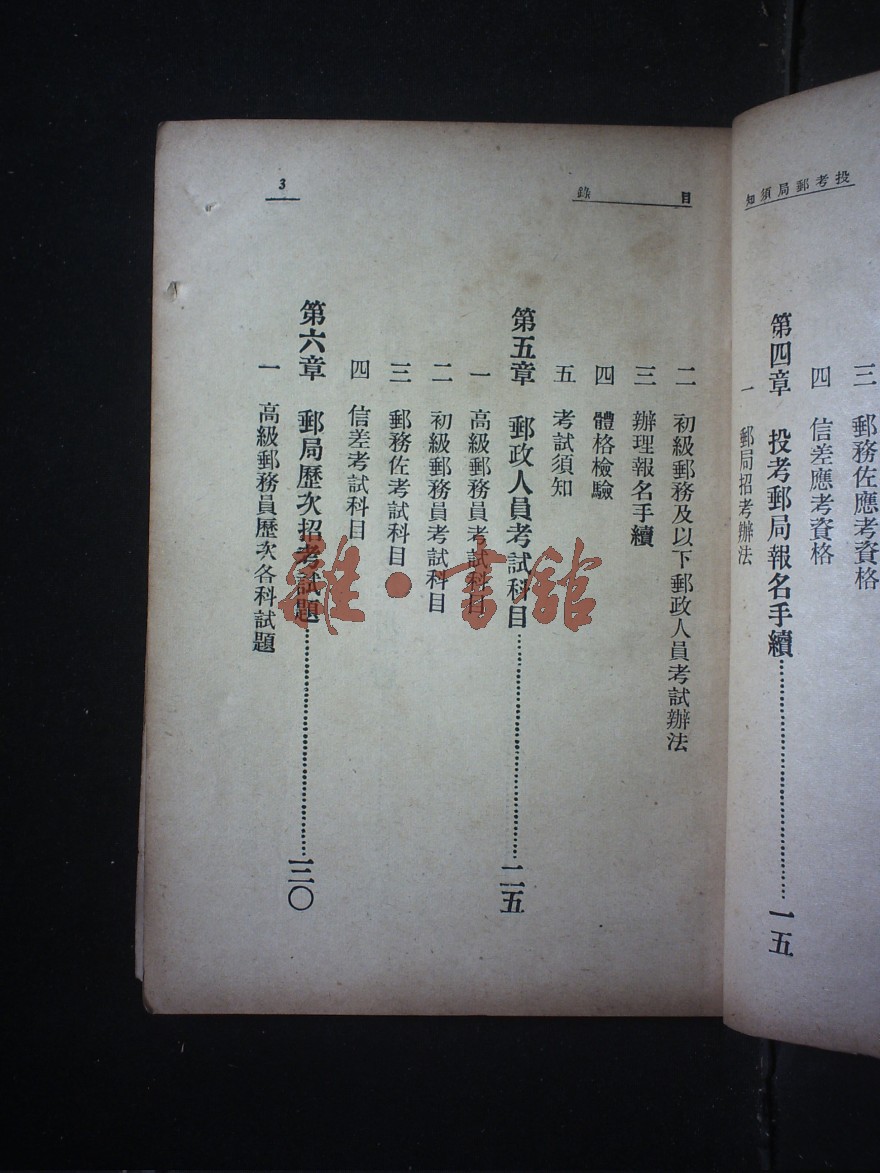 投考郵局須知
三 郵務佐應考資格
四 信差應考資格
第四章 投考郵局報名手續……………一五
一 郵局招考辦法
目錄
3
二 初級郵務及以下郵政人員考試辦法
三 辦理報名手續
四 體格檢驗
五 考試須知
第五章 郵政人員考試科目……………二五
一 高級郵務員考試科目
二 初級郵務員考試科目
三 郵務佐考試科目
四 信差考試科目
第六章 郵局歷次招考試題……………三〇
一 高級郵務員歷次各科試題
雜·書館